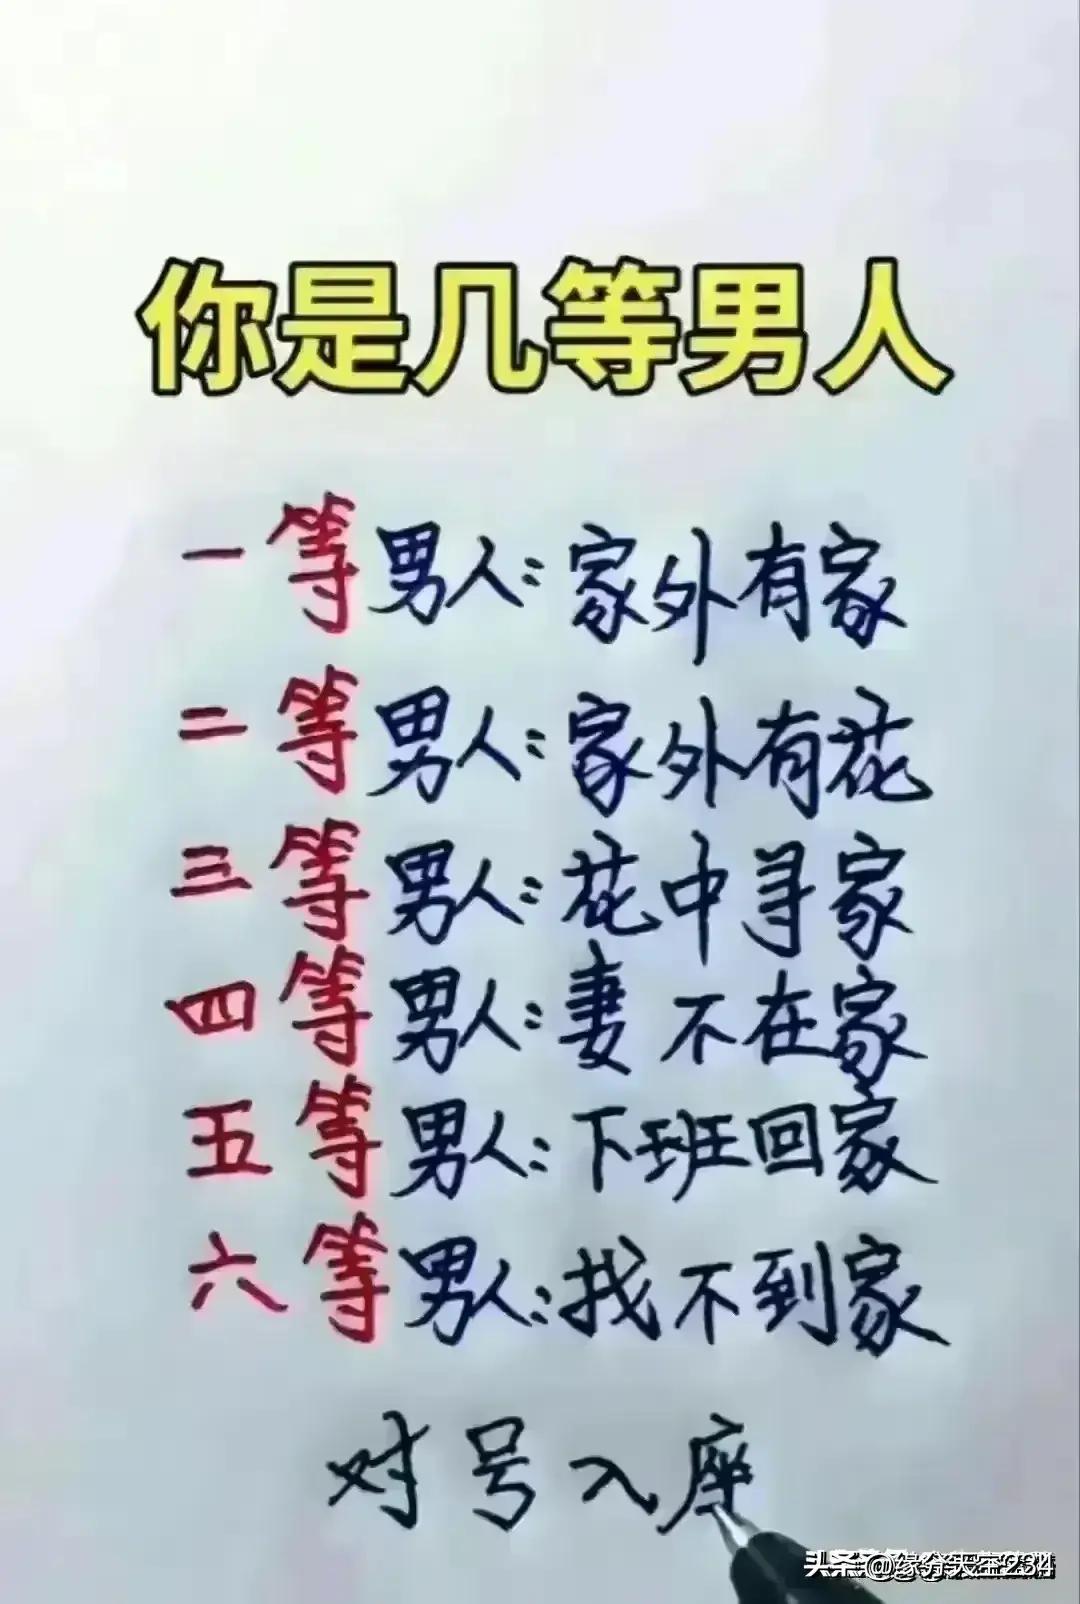 你是几等男人
一等男人:家外有家
二等男人:家外有花
三等男人:花中寻家
四等男人:妻不在家
五等男人:下班回家
六等男人:找不到家
对号入座
头条 @缘分天空234